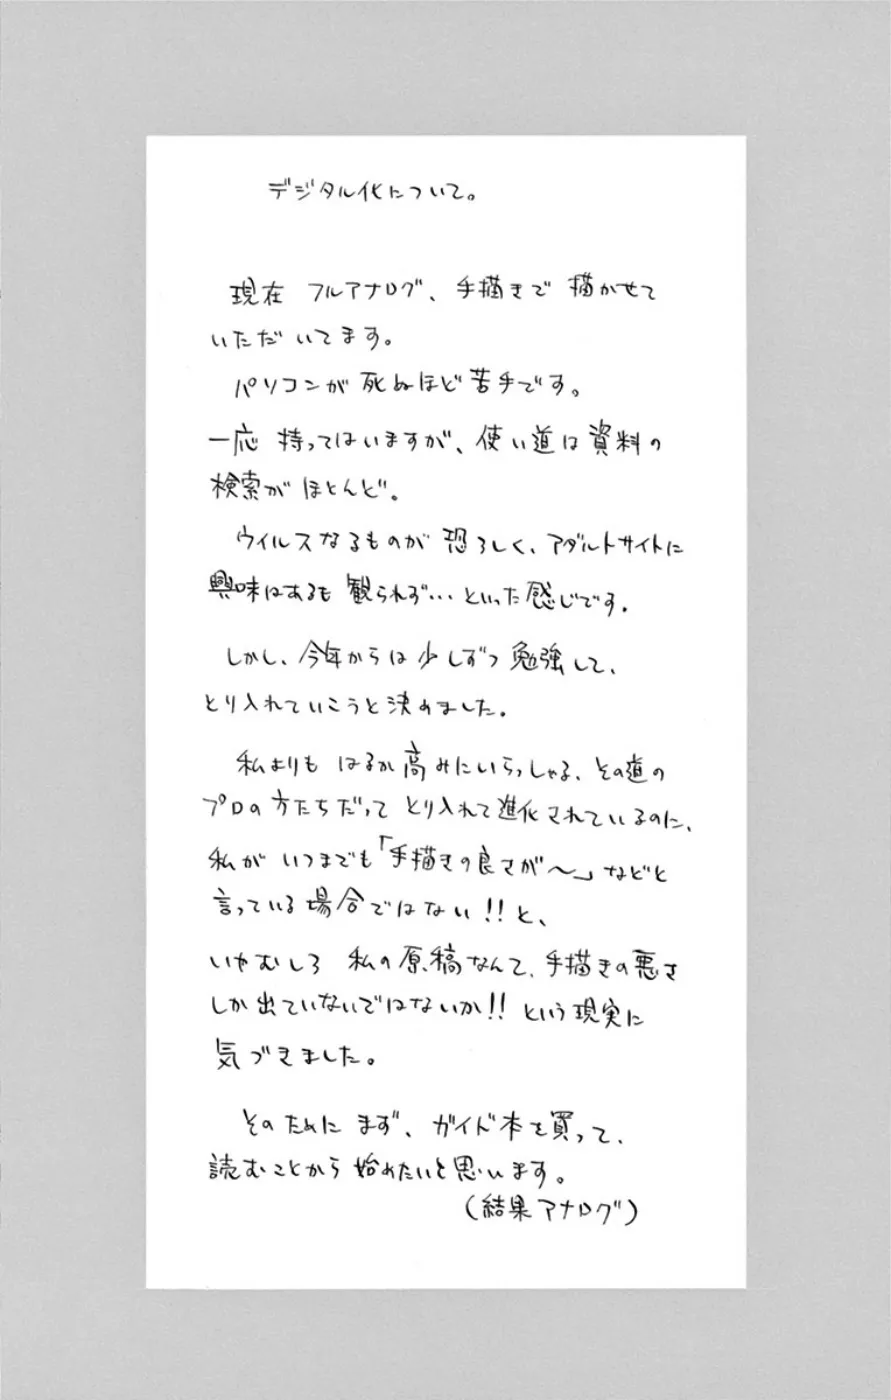 デジタル化について。
現在 フルアナログ、手描きで 描かせて
いただいてます。
パソコンが 死ぬほど苦手です。
一応 持ってはいますが、使い道は資料の
検索がほとんど。
ウイルスなるものが 恐ろしく、アダルトサイトに
興味はあるも 観られず… といった感じです。
しかし、今年からは少しずつ勉強して、
とり入れていこうと決めました。
私よりも はるか高みにいらっしゃる、その道の
プロの方たちだって とり入れて進化されているのに、
私が いつまでも「手描きの良さが〜」などと
言っている場合ではない!!と、
いやむしろ 私の原稿なんて、手描きの悪さ
しか出ていないではないか!! という現実に
気づきました。
そのために まず、ガイド本を買って、
読むことから 始めたいと思います。
(結果アナログ)